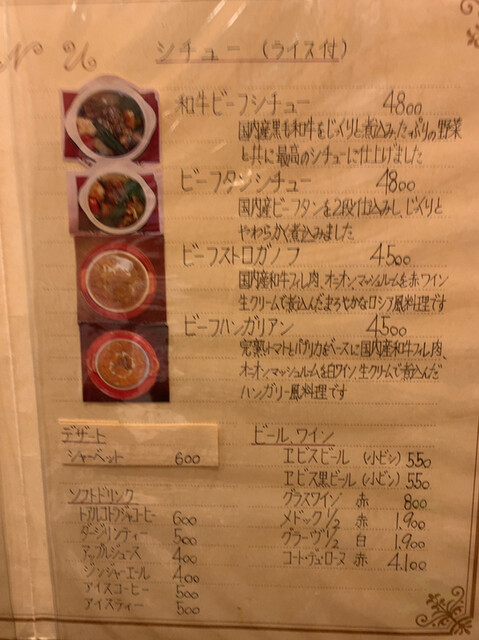 NU
シチュー (ライス付)
和牛ビーフシチュー 4800
国内産黒も和牛をじっくりと煮込みたっぷりの野菜
と共に最高のシチューに仕上げました
ビーフタンシチュー 4800
国内産ビーフタンを2段仕込みし、じっくりと
やわらかく煮込みました
ビーフストロガノフ 4500
国内産和牛フィレ肉、オニオン、マッシュルームを赤ワイン
生クリームで煮込んだまろやかなロシア風料理です
ビーフハンガリアン 4500
完熟トマトとパプリカをベースに国内産和牛フィレ肉、
オニオン、マッシュルームを白ワイン、生クリームで煮込んだ
ハンガリー風料理です
デザート
シャーベット 600
ソフトドリンク
トアルコトラジャコーヒー 600
ダージリンティー 500
アップルジュース 400
ジンジャーエール 400
アイスコーヒー 500
アイスティー 500
ビール、ワイン
エビスビール (小ビン) 550
エビス黒ビール (小ビン) 550
グラスワイン 赤 800
メドック1/2 赤 1.900
グラーヴ1/2 白 1.900
コート・デュ・ローヌ 赤 4.100